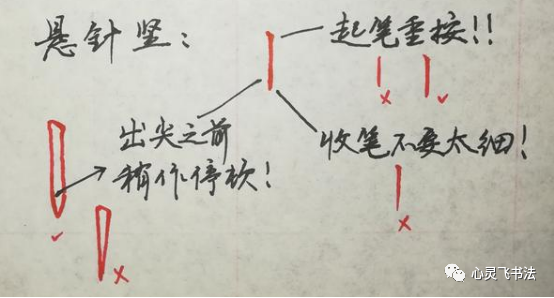 悬针竖：
起笔重按！！
出尖之前
稍作停顿！
收笔不要太细！
心灵飞书法